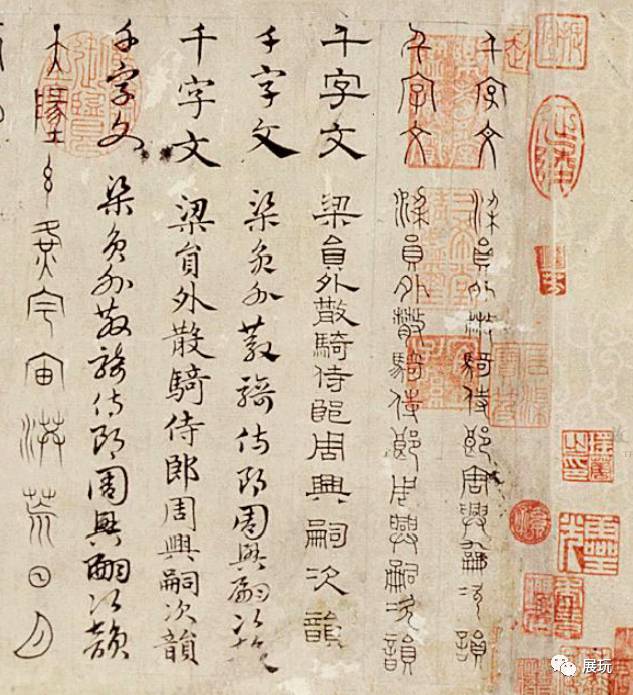 千字文 梁員外散騎侍郎周興嗣次韻
千字文 梁員外散騎侍郎周興嗣次韻
千字文 梁員外散騎侍郎周興嗣次韻
千字文 梁員外散騎侍郎周興嗣次韻
千字文 梁員外散騎侍郎周興嗣次韻
千字文 梁員外散騎侍郎周興嗣次韻
天地玄黃宇宙洪荒日月
展玩